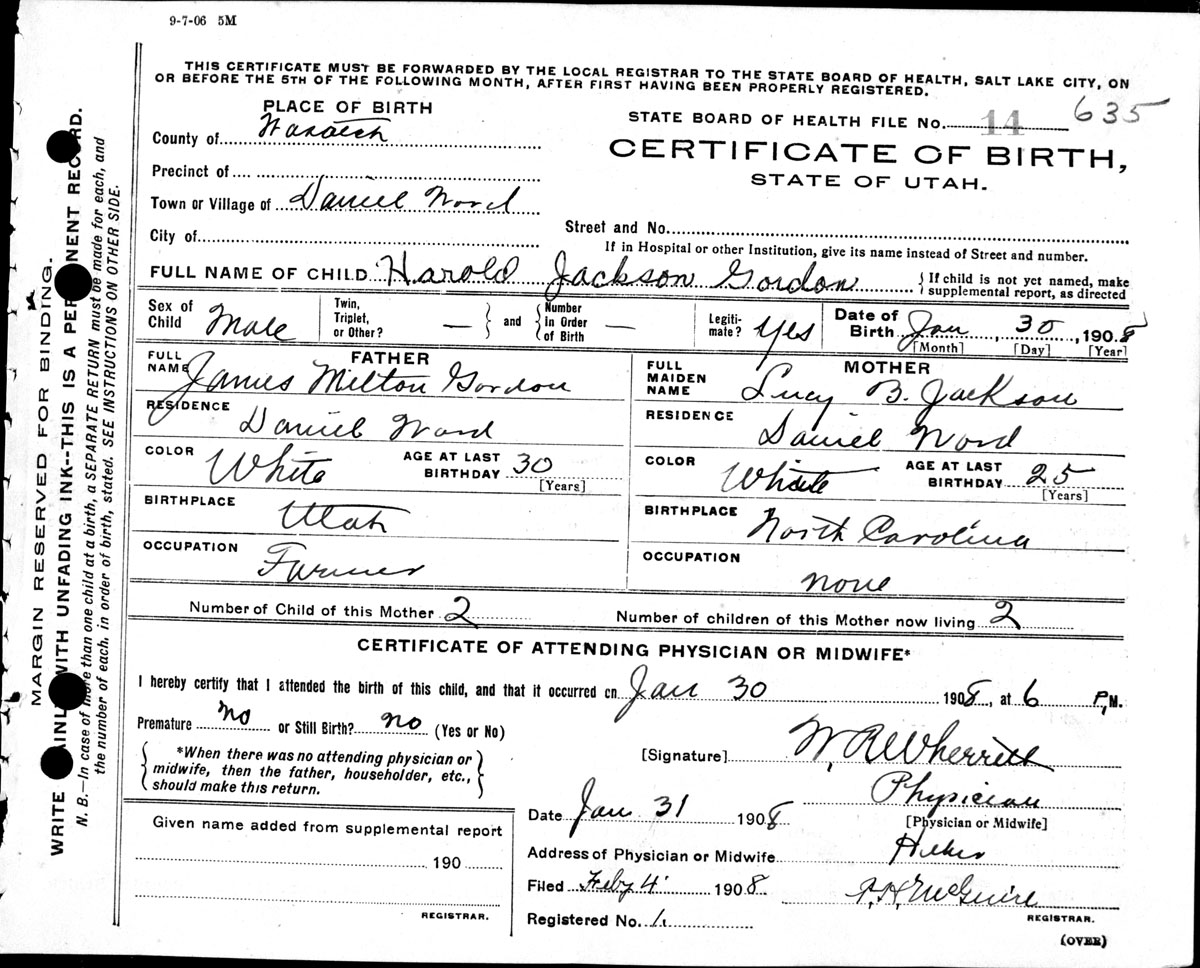 9-7-06 5M
THIS CERTIFICATE MUST BE FORWARDED BY THE LOCAL REGISTRAR TO THE STATE BOARD OF HEALTH, SALT LAKE CITY, ON
OR BEFORE THE 5TH OF THE FOLLOWING MONTH, AFTER FIRST HAVING BEEN PROPERLY REGISTERED.
PLACE OF BIRTH
County of Wasatch
Precinct of
Town or Village of Daniel Ward
City of
STATE BOARD OF HEALTH FILE No. 14 635
CERTIFICATE OF BIRTH,
STATE OF UTAH.
Street and No.
If in Hospital or other Institution, give its name instead of Street and number.
FULL NAME OF CHILD Harold Jackson Gordon { If child is not yet named, make
supplemental report, as directed
Sex of Child Male Twin, Triplet, or Other? — and Number in Order of Birth — Legiti-mate? Yes Date of Birth Jan, 30, 1908
[Month] [Day] [Year]
FATHER
FULL NAME James Milton Gordon
RESIDENCE Daniel Ward
COLOR White AGE AT LAST BIRTHDAY 30
[Years]
BIRTHPLACE Utah
OCCUPATION Farmer
MOTHER
FULL MAIDEN NAME Lucy B. Jackson
RESIDENCE Daniel Ward
COLOR White AGE AT LAST BIRTHDAY 25
[Years]
BIRTHPLACE North Carolina
OCCUPATION none
Number of Child of this Mother 2 Number of children of this Mother now living 2
CERTIFICATE OF ATTENDING PHYSICIAN OR MIDWIFE*
I hereby certify that I attended the birth of this child, and that it occurred on Jan 30 1908, at 6 P.M.
Premature no or Still Birth? no (Yes or No)
*When there was no attending physician or
midwife, then the father, householder, etc.,
should make this return.
[Signature] W. R. Wherritt
Physician
[Physician or Midwife]
Date Jan 31 1908
Address of Physician or Midwife Heber
Filed Feby 4 1908 McGuire
REGISTRAR.
Registered No. 1.
(OVER)
Given name added from supplemental report
190
REGISTRAR.
MARGIN RESERVED FOR BINDING.
WRITE AINL WITH UNFADING INK--THIS IS A PER NENT REC RD.
N. B.—In case of more than one child at a birth, a SEPARATE RETURN must be made for each, and
the number of each, in order of birth, stated. SEE INSTRUCTIONS ON OTHER SIDE.